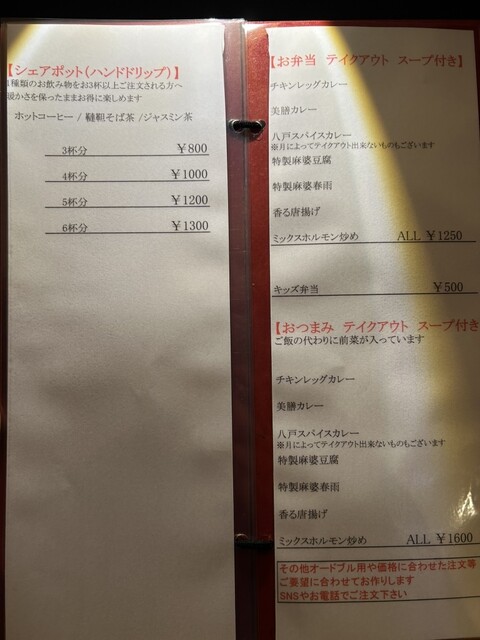 【シェアポット(ハンドドリップ)】
1種類のお飲み物をお3杯以上ご注文される方へ
暖かさを保ったままお得に楽しめます
ホットコーヒー / 韃靼そば茶 /ジャスミン茶
3杯分 ￥800
4杯分 ￥1000
5杯分 ￥1200
6杯分 ￥1300
【お弁当 テイクアウト スープ付き】
チキンレッグカレー
美膳カレー
八戸スパイスカレー
※月によってテイクアウト出来ないものもございます
特製麻婆豆腐
特製麻婆春雨
香る唐揚げ
ミックスホルモン炒め ALL ￥1250
キッズ弁当 ￥500
【おつまみ テイクアウト スープ付き
ご飯の代わりに前菜が入っています
チキンレッグカレー
美膳カレー
八戸スパイスカレー
※月によってテイクアウト出来ないものもございます
特製麻婆豆腐
特製麻婆春雨
香る唐揚げ
ミックスホルモン炒め ALL ￥1600
その他オードブル用や価格に合わせた注文等
ご要望に合わせてお作りします
SNSやお電話でご注文下さい